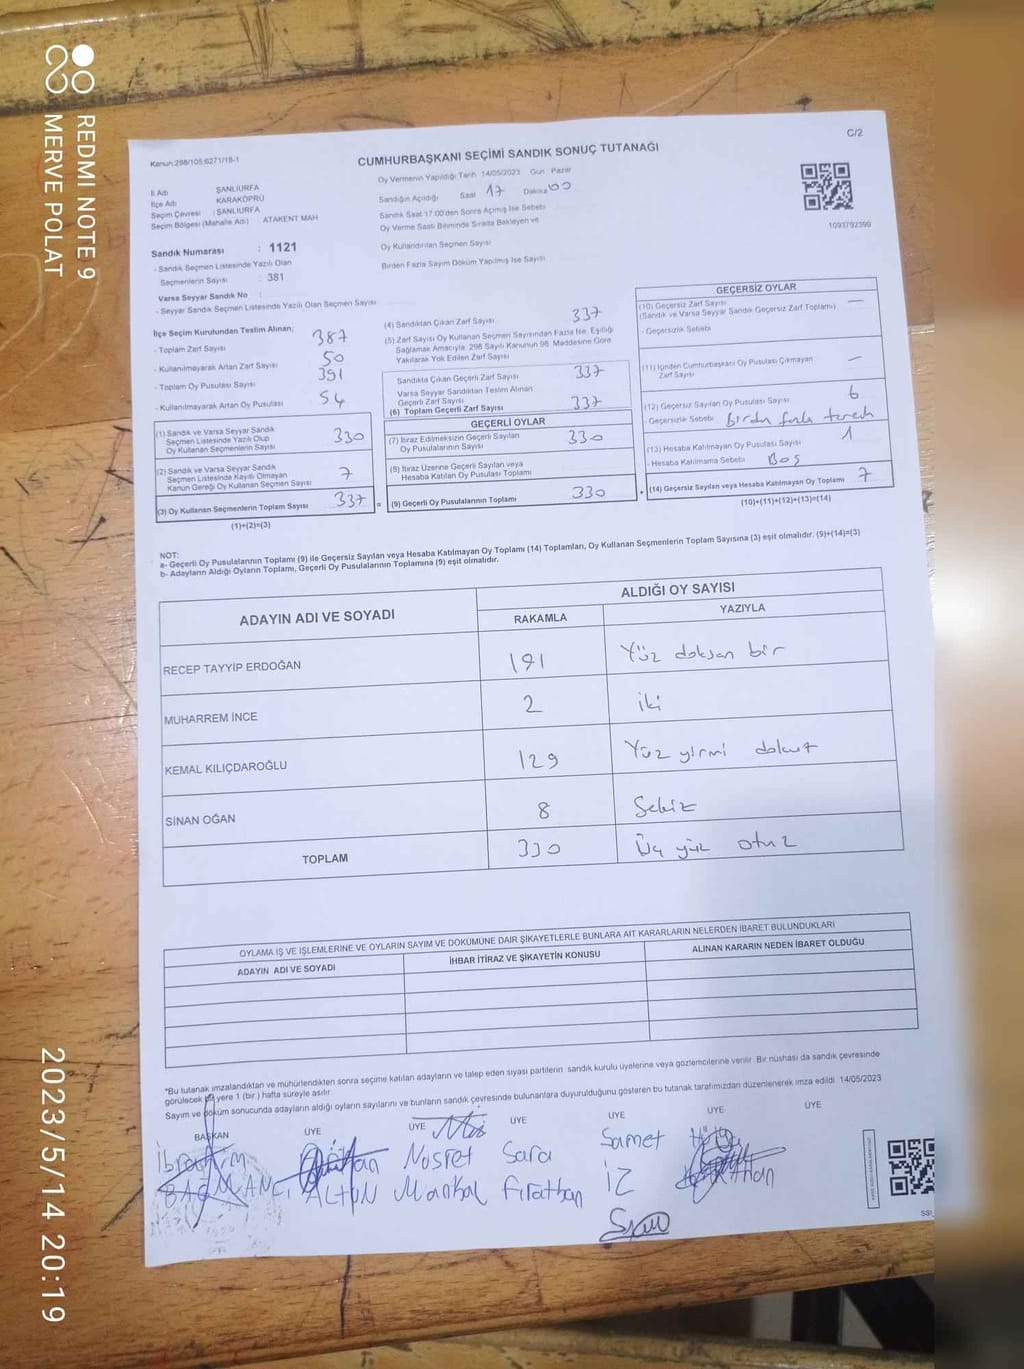 C/2
Kanun:298/105,6271/18-1
CUMHURBAŞKANI SEÇİMİ SANDIK SONUÇ TUTANAĞI
Oy Vermenin Yapıldığı Tarih 14/05/2023 Gün Pazar
İl Adı ŞANLIURFA
İlçe Adı KARAKÖPRÜ
Seçim Çevresi : ŞANLIURFA
Seçim Bölgesi (Mahalle Adı) : ATAKENT MAH
Sandığın Açıldığı Saat 17 Dakika 00
Sandık Saat 17:00'den Sonra Açılmış İse Sebebi
Oy Verme Saati Bitiminde Sırada Bekleyen ve
Oy Kullandırılan Seçmen Sayısı
Birden Fazla Sayım Döküm Yapılmış İse Sayısı
1093792399
Sandık Numarası : 1121
- Sandık Seçmen Listesinde Yazılı Olan
Seçmenlerin Sayısı : 381
Varsa Seyyar Sandık No :
- Seyyar Sandık Seçmen Listesinde Yazılı Olan Seçmen Sayısı
İlçe Seçim Kurulundan Teslim Alınan;
- Toplam Zarf Sayısı 387
- Kullanılmayarak Artan Zarf Sayısı 50
- Toplam Oy Pusulası Sayısı 391
- Kullanılmayarak Artan Oy Pusulası 54
(1) Sandık ve Varsa Seyyar Sandık
Seçmen Listesinde Yazılı Olup
Oy Kullanan Seçmenlerin Sayısı 330
(2) Sandık ve Varsa Seyyar Sandık
Seçmen Listesinde Kayıtlı Olmayan
Kanun Gereği Oy Kullanan Seçmen Sayısı 7
(3) Oy Kullanan Seçmenlerin Toplam Sayısı 337 =
(1)+(2)=(3)
(4) Sandıktan Çıkan Zarf Sayısı 337
(5) Zarf Sayısı Oy Kullanan Seçmen Sayısından Fazla İse, Eşitliği
Sağlamak Amacıyla, 298 Sayılı Kanunun 98. Maddesine Göre
Yakılarak Yok Edilen Zarf Sayısı
Sandıkta Çıkan Geçerli Zarf Sayısı 337
Varsa Seyyar Sandıktan Teslim Alınan
Geçerli Zarf Sayısı
(6) Toplam Geçerli Zarf Sayısı 337
GEÇERLİ OYLAR
(7) İtiraz Edilmeksizin Geçerli Sayılan
Oy Pusulalarının Sayısı 330
(8) İtiraz Üzerine Geçerli Sayılan veya
Hesaba Katılan Oy Pusulası Toplamı
(9) Geçerli Oy Pusulalarının Toplamı 330 +
GEÇERSİZ OYLAR
(10) Geçersiz Zarf Sayısı —
(Sandık ve Varsa Seyyar Sandık Geçersiz Zarf Toplamı)
- Geçersizlik Sebebi
(11) İçinden Cumhurbaşkanı Oy Pusulası Çıkmayan —
Zarf Sayısı
(12) Geçersiz Sayılan Oy Pusulası Sayısı 6
- Geçersizlik Sebebi Birden fazla tercih
(13) Hesaba Katılmayan Oy Pusulası Sayısı 1
- Hesaba Katılmama Sebebi BOŞ
(14) Geçersiz Sayılan veya Hesaba Katılmayan Oy Toplamı 7
(10)+(11)+(12)+(13)=(14)
NOT:
a- Geçerli Oy Pusulalarının Toplamı (9) ile Geçersiz Sayılan veya Hesaba Katılmayan Oy Toplamı (14) Toplamları, Oy Kullanan Seçmenlerin Toplam Sayısına (3) eşit olmalıdır. (9)+(14)=(3)
b- Adayların Aldığı Oyların Toplamı, Geçerli Oy Pusulalarının Toplamına (9) eşit olmalıdır.
ADAYIN ADI VE SOYADI
ALDIĞI OY SAYISI
RAKAMLA YAZIYLA
RECEP TAYYİP ERDOĞAN 191 Yüz doksan bir
MUHARREM İNCE 2 iki
KEMAL KILIÇDAROĞLU 129 Yüz yirmi dokuz
SİNAN OĞAN 8 Sekiz
TOPLAM 330 Üç yüz otuz
OYLAMA İŞ VE İŞLEMLERİNE VE OYLARIN SAYIM VE DÖKÜMÜNE DAİR ŞİKAYETLERLE BUNLARA AİT KARARLARIN NELERDEN İBARET BULUNDUKLARI
ADAYIN ADI VE SOYADI İHBAR İTİRAZ VE ŞİKAYETİN KONUSU ALINAN KARARIN NEDEN İBARET OLDUĞU
*Bu tutanak imzalandıktan ve mühürlendikten sonra seçime katılan adayların ve talep eden siyasi partilerin sandık kurulu üyelerine veya gözlemcilerine verilir. Bir nüshası da sandık çevresinde
görülecek bir yere 1 (bir) hafta süreyle asılır.
Sayım ve döküm sonucunda adayların aldığı oyların sayılarını ve bunların sandık çevresinde bulunanlara duyurulduğunu gösteren bu tutanak tarafımızdan düzenlenerek imza edildi. 14/05/2023
BAŞKAN ÜYE ÜYE ÜYE ÜYE ÜYE ÜYE
İbrahim Nosret Sara Samet
BAĞMANCI ALTUN Mankal Fırathan İZ
REDMI NOTE 9
MERVE POLAT
2023/5/14 20:19